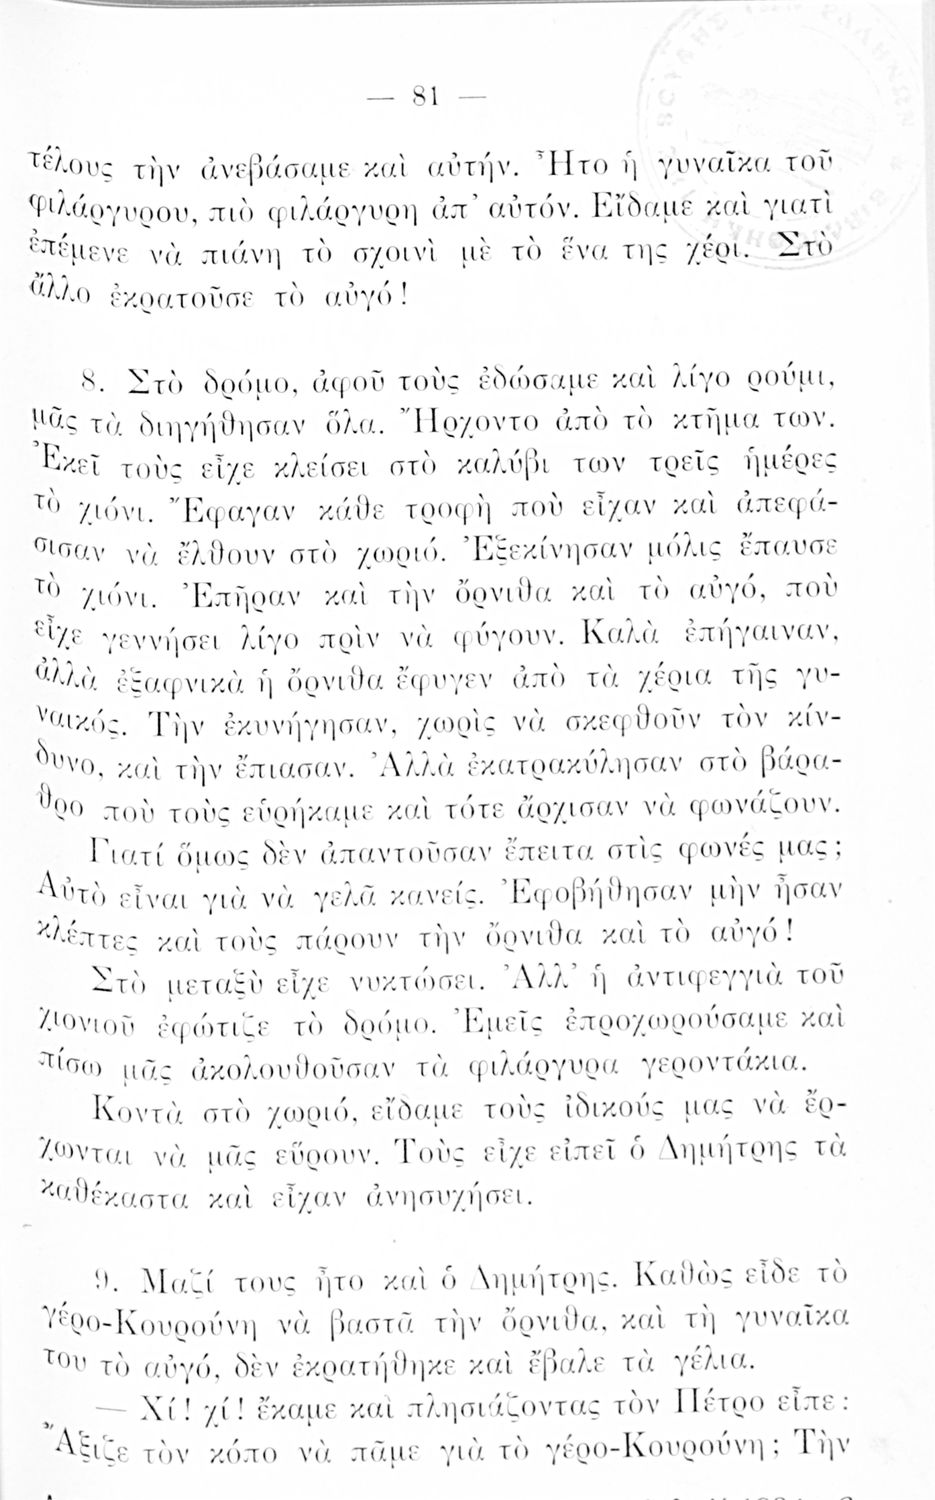 — 81 —
τέλους τὴν ἀνεβάσαμε καὶ αὐτήν. Ἦτο ἡ γυναῖκα τοῦ
φιλάργυρου, πιὸ φιλάργυρη ἀπ’ αὐτόν. Εἴδαμε καὶ γιατὶ
ἐπέμενε νὰ πιάνη τὸ σχοινὶ μὲ τὸ ἕνα της χέρι. Στὸ
ἄλλο ἐκρατοῦσε τὸ αὐγό!
8. Στὸ δρόμο, ἀφοῦ τοὺς ἐδώσαμε καὶ λίγο ρούμι,
μᾶς τὰ διηγήθησαν ὅλα. Ἤρχοντο ἀπὸ τὸ κτῆμα των.
Ἐκεῖ τοὺς εἶχε κλείσει στὸ καλύβι των τρεῖς ἡμέρες
τὸ χιόνι. Ἔφαγαν κάθε τροφὴ ποὺ εἶχαν καὶ ἀπεφά-
σισαν νὰ ἔλθουν στὸ χωριό. Ἐξεκίνησαν μόλις ἔπαυσε
τὸ χιόνι. Ἐπῆραν καὶ τὴν ὄρνιθα καὶ τὸ αὐγό, ποὺ
εἶχε γεννήσει λίγο πρὶν νὰ φύγουν. Καλὰ ἐπήγαιναν,
ἀλλὰ ἐξαφνικὰ ἡ ὄρνιθα ἔφυγεν ἀπὸ τὰ χέρια τῆς γυ-
ναικός. Τὴν ἐκυνήγησαν, χωρὶς νὰ σκεφθοῦν τὸν κίν-
δυνο, καὶ τὴν ἔπιασαν. Ἀλλὰ ἐκατρακύλησαν στὸ βάρα-
θρο ποὺ τοὺς εὑρήκαμε καὶ τότε ἄρχισαν νὰ φωνάζουν.
Γιατί ὅμως δὲν ἀπαντοῦσαν ἔπειτα στὶς φωνές μας;
Αὐτὸ εἶναι γιὰ νὰ γελᾶ κανείς. Ἐφοβήθησαν μὴν ἦσαν
κλέπτες καὶ τοὺς πάρουν τὴν ὄρνιθα καὶ τὸ αὐγό!
Στὸ μεταξὺ εἶχε νυκτώσει. Ἀλλ’ ἡ ἀντιφεγγιὰ τοῦ
χιονιοῦ ἐφώτιζε τὸ δρόμο. Ἐμεῖς ἐπροχωρούσαμε καὶ
πίσω μᾶς ἀκολουθοῦσαν τὰ φιλάργυρα γεροντάκια.
Κοντὰ στὸ χωριό, εἴδαμε τοὺς ἰδικούς μας νὰ ἔρ-
χωνται νὰ μᾶς εὕρουν. Τοὺς εἶχε εἰπεῖ ὁ Δημήτρης τὰ
καθέκαστα καὶ εἶχαν ἀνησυχήσει.
9. Μαζί τους ἦτο καὶ ὁ Δημήτρης. Καθὼς εἶδε τὸ
γέρο-Κουρούνη νὰ βαστᾶ τὴν ὄρνιθα, καὶ τὴ γυναῖκα
του τὸ αὐγό, δὲν ἐκρατήθηκε καὶ ἔβαλε τὰ γέλια.
— Χί! χί! ἔκαμε καὶ πλησιάζοντας τὸν Πέτρο εἶπε:
Ἄξιζε τὸν κόπο νὰ πᾶμε γιὰ τὸ γέρο-Κουρούνη; Τὴν